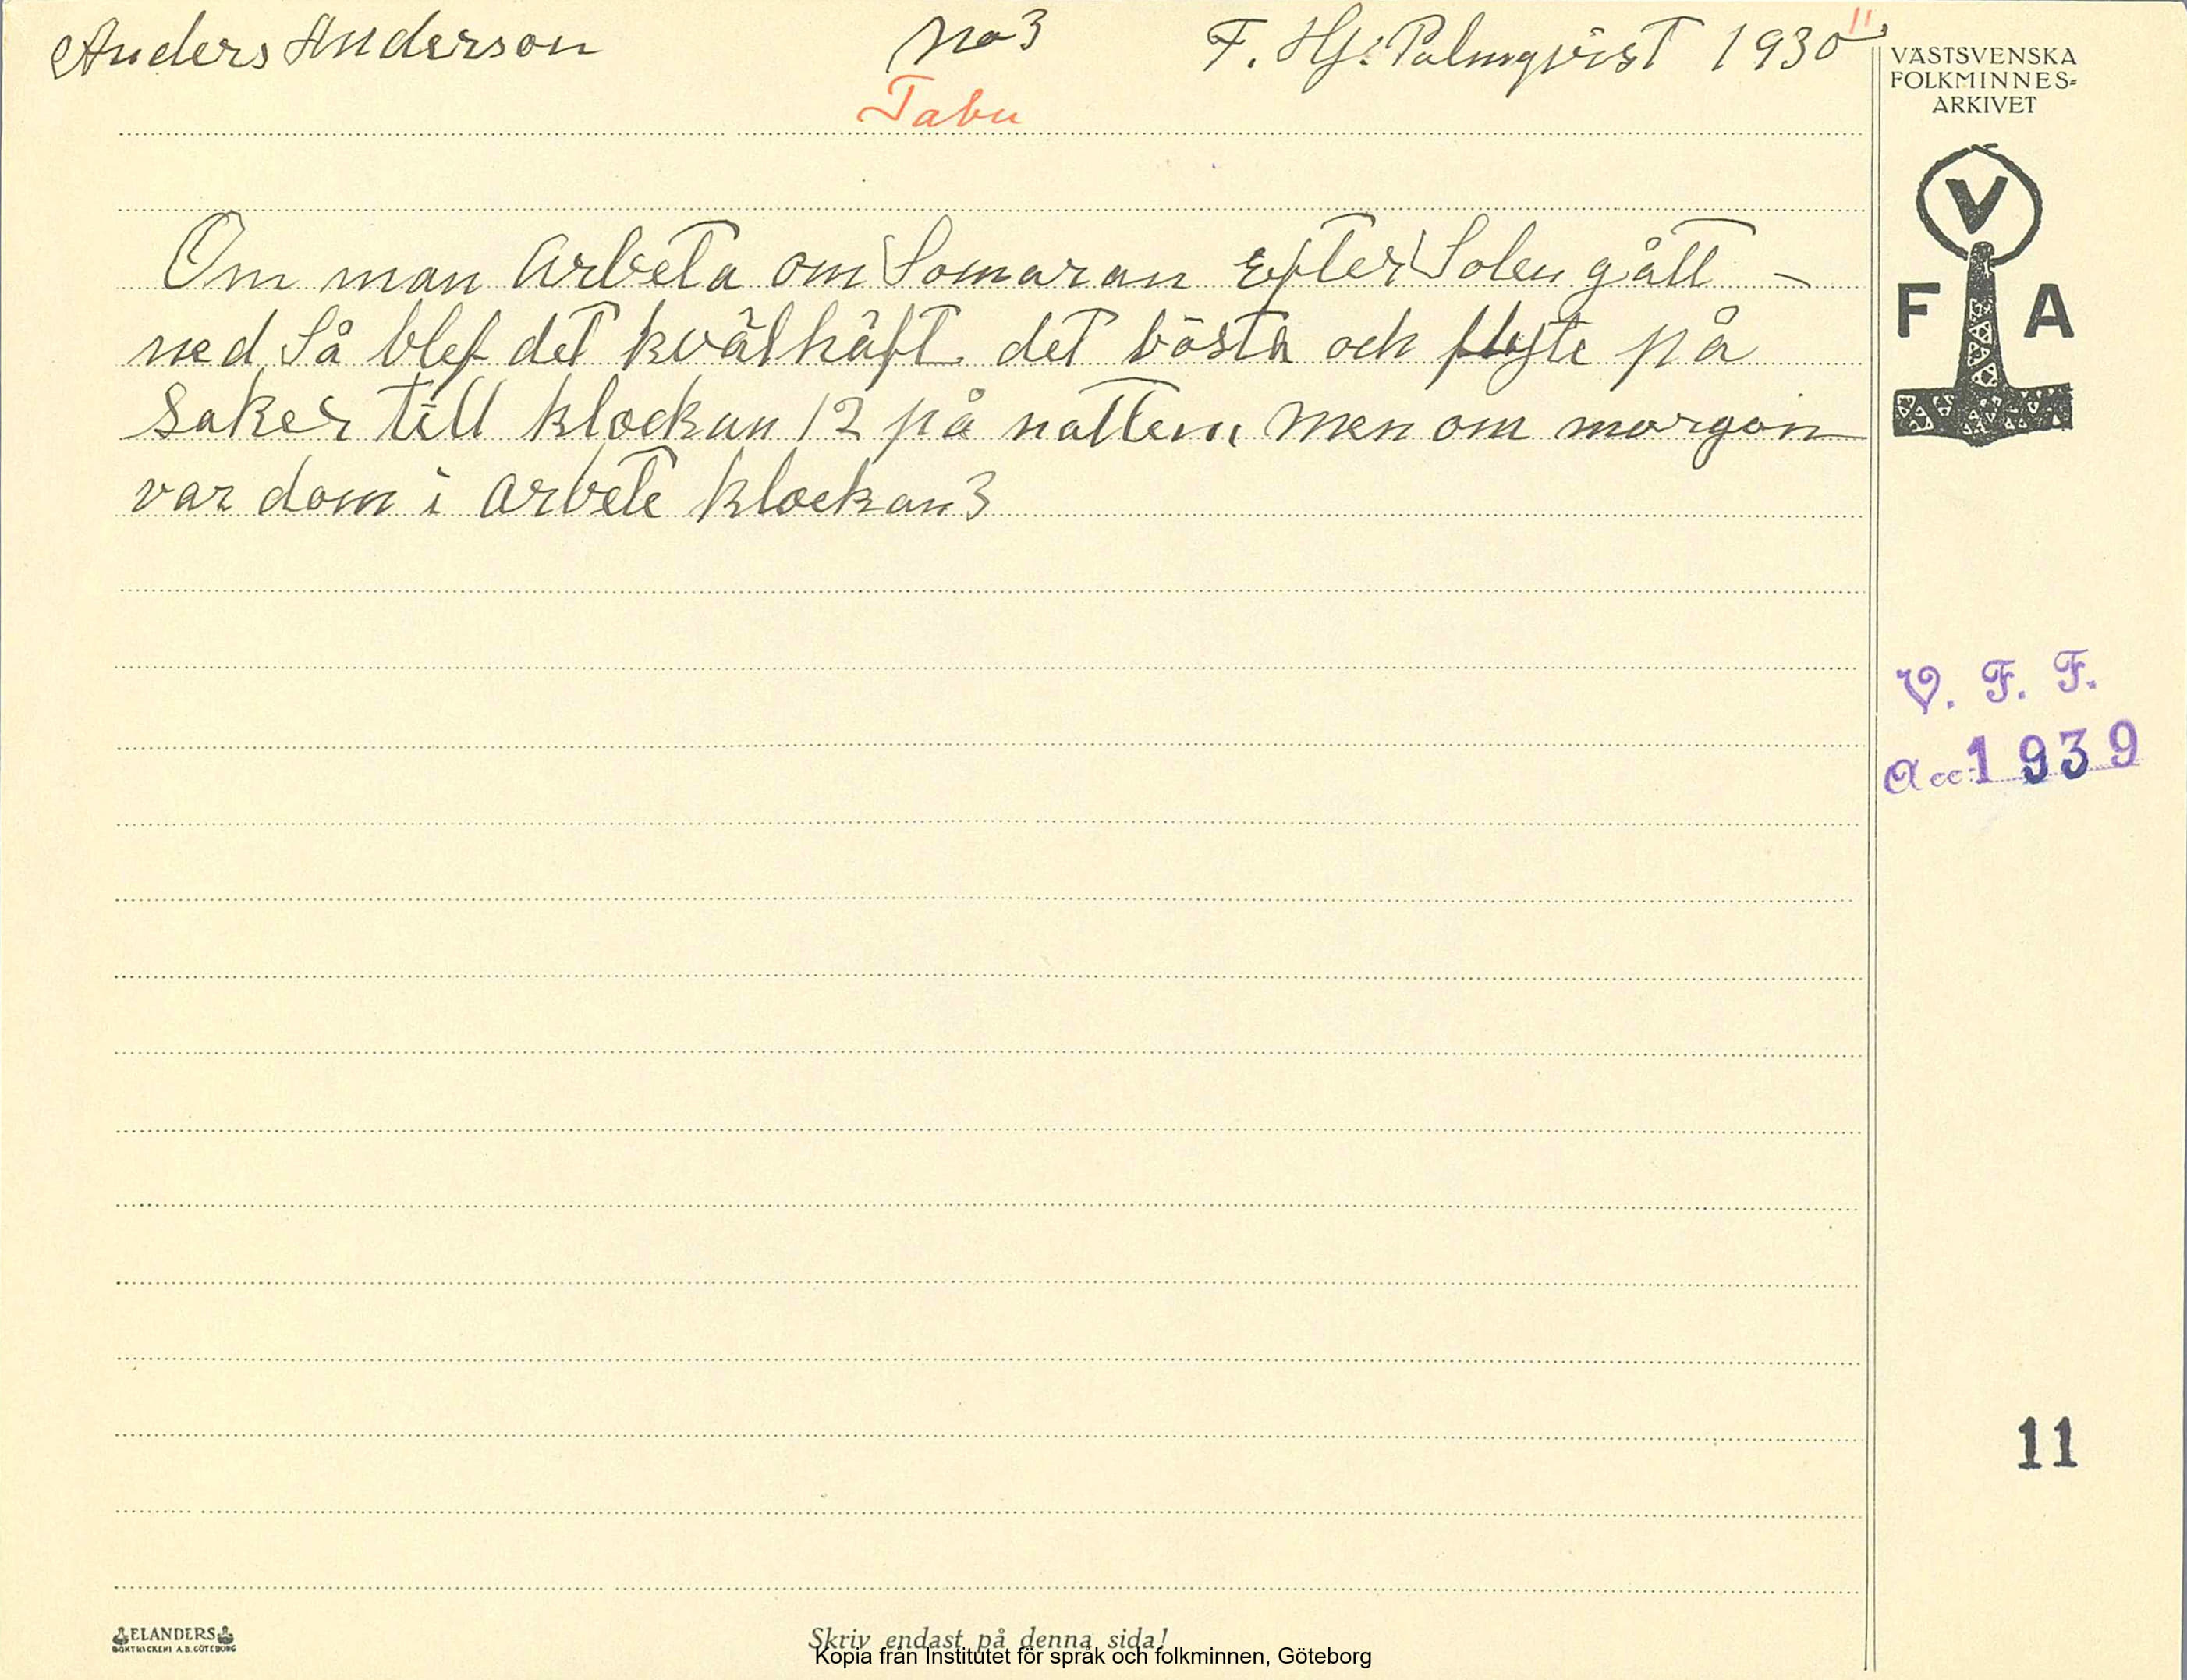 Anders Anderson no 3 F. Hj: Palmqvist 1930
11
Tabu
VÄSTSVENSKA
FOLKMINNES=
ARKIVET
V
F A
Om man arbeta om Somaran efter Solen gått –
ned Så blef det kvälhäft det bösta och flyte på
saker till klockan 12 på natten, men om morgon
var dom i arbete klockan 3
V. F. F.
acc 1939
11
ELANDERS
BOKTRYCKERI A.B. GÖTEBORG
Skriv endast på denna sida!
Kopia från Institutet för språk och folkminnen, Göteborg